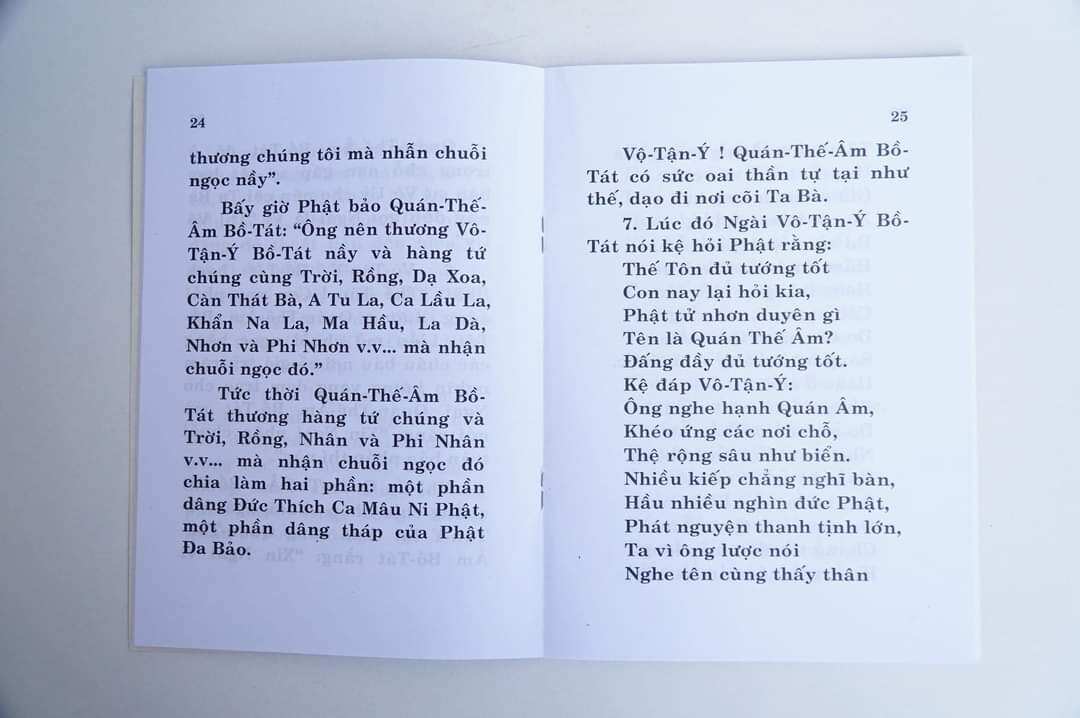 24
thương chúng tôi mà nhẫn chuỗi
ngọc nầy”.
Bấy giờ Phật bảo Quán-Thế-
Âm Bồ-Tát: “Ông nên thương Vô-
Tận-Ý Bồ-Tát nầy và hàng tứ
chúng cùng Trời, Rồng, Dạ Xoa,
Càn Thát Bà, A Tu La, Ca Lầu La,
Khẩn Na La, Ma Hầu, La Dà,
Nhơn và Phi Nhơn v.v... mà nhận
chuỗi ngọc đó.”
Tức thời Quán-Thế-Âm Bồ-
Tát thương hàng tứ chúng và
Trời, Rồng, Nhân và Phi Nhân
v.v... mà nhận chuỗi ngọc đó
chia làm hai phần: một phần
dâng Đức Thích Ca Mâu Ni Phật,
một phần dâng tháp của Phật
Đa Bảo.
25
Vộ-Tận-Ý ! Quán-Thế-Âm Bồ-
Tát có sức oai thần tự tại như
thế, dạo đi nơi cõi Ta Bà.
7. Lúc đó Ngài Vô-Tận-Ý Bồ-
Tát nói kệ hỏi Phật rằng:
Thế Tôn đủ tướng tốt
Con nay lại hỏi kia,
Phật tử nhơn duyên gì
Tên là Quán Thế Âm?
Đấng đầy đủ tướng tốt.
Kệ đáp Vô-Tận-Ý:
Ông nghe hạnh Quán Âm,
Khéo ứng các nơi chỗ,
Thệ rộng sâu như biển.
Nhiều kiếp chẳng nghĩ bàn,
Hầu nhiều nghìn đức Phật,
Phát nguyện thanh tịnh lớn,
Ta vì ông lược nói
Nghe tên cùng thấy thân